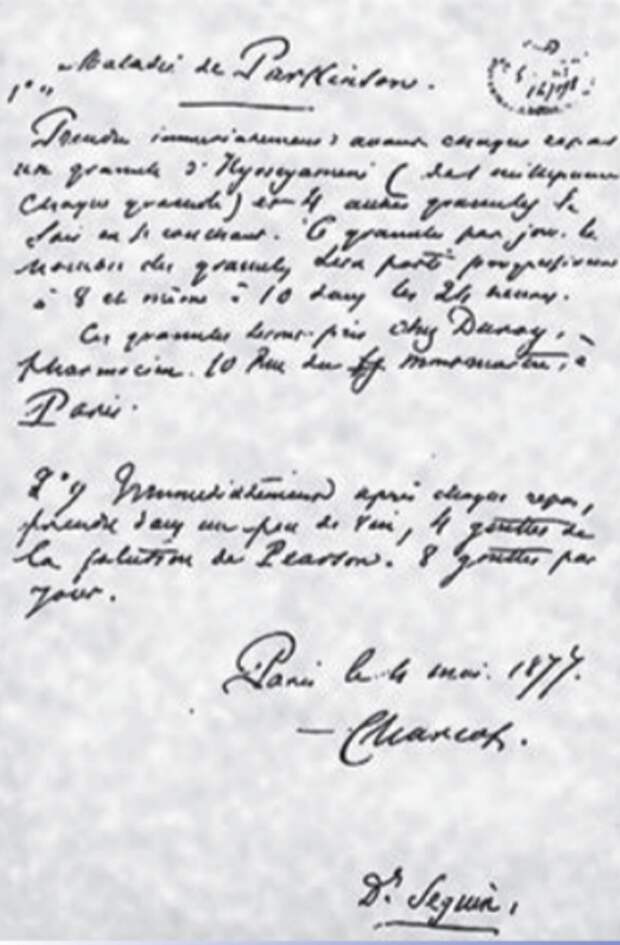 Maladie de Parkinson.
1°"
Prendre immédiatement avant chaque repas
un granule d'Hyosyamine (
chaque granule) et 4 autres granules le
soir en se couchant. 6 granules par jour. le
nombre des granules sera porté progressivement
à 8 et même à 10 dans les 24 heures.
Ces granules seront pris chez Duroy,
pharmacien. 10 Rue du fg montmartre, à
Paris.
2°" Immédiatement après chaque repas,
prendre dans un peu de vin, 4 gouttes de
la solution de Pearson. 8 gouttes par
jour.
Paris le 4 mai. 1877.
— Charcot.
Dr Seguin,